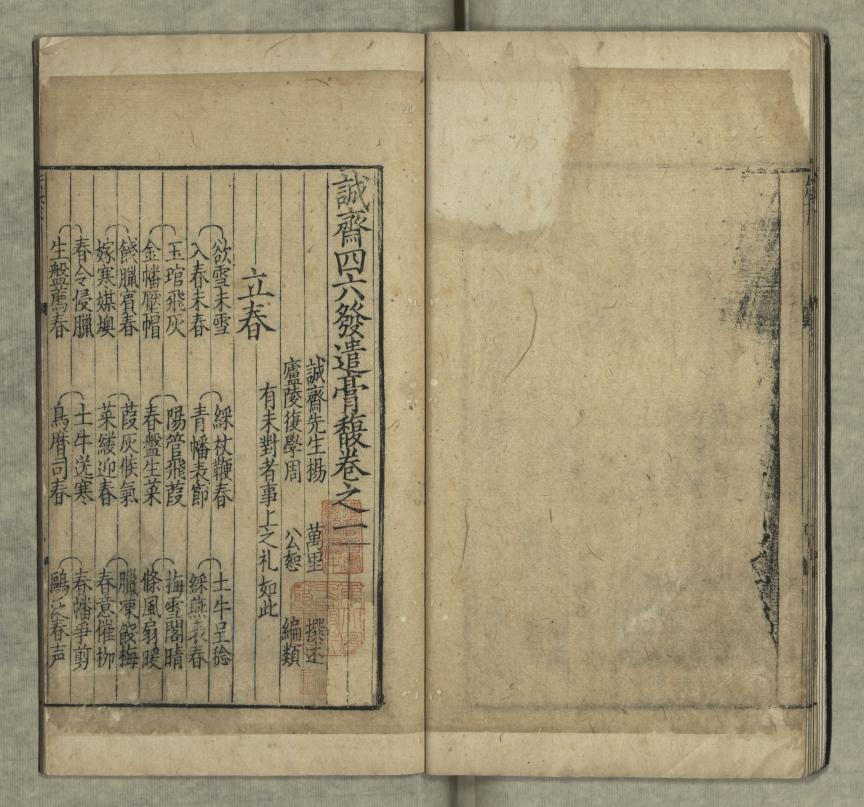 誠齋四六發遣膏馥卷之一
誠齋先生揚 萬里 撰述
廬陵後學周 公恕 編類
有未對者事上之礼如此
立春
欲雪未雪 綵杖鞭春 土牛呈稔
入春未春 青幡表節 綵燕表春
玉琯飛灰 陽管飛葭 梅雪閣晴
金幡壓帽 春盤生菜 條風扇暖
餞臘賓春 葭灰候氣 臘凍餕梅
嫁寒媒燠 菜縷迎春 春意催柳
春令侵臘 土牛送寒 春幡爭剪
生盤薦春 鳥曆司春 春声